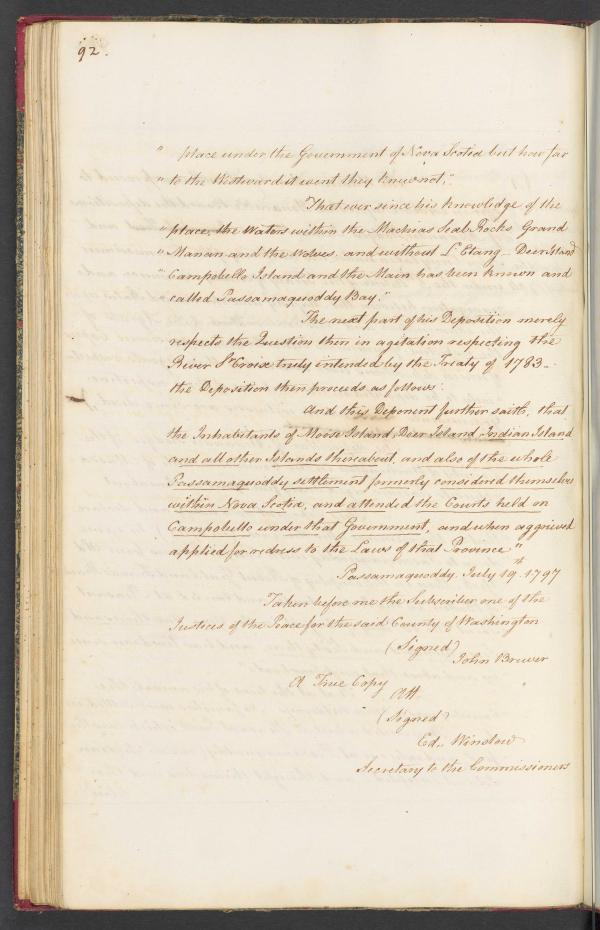 92.
" place under the Government of Nova Scotia but how far
" to the Westward it went they knew not;"
That ever since his knowledge of the
" place, the Waters within the Machias Seal Rocks Grand
" Manan and the Wolves, and without L'Etang – Deer Island
" Campobello Island and the Main has been known and
called Passamaquoddy Bay."
The next part of his Deposition merely
respects the Question then in agitation respecting the
River St Croix truly intended by the Treaty of 1783 –
the Deposition then proceeds as follows:
And this Deponent further saith, that
the Inhabitants of Moose Island, Deer Island, Indian Island
and all other Islands thereabout, and also of the whole
Passamaquoddy settlement formerly considered themselves
within Nova Scotia, and attended the Courts held on
Campobello under that Government, and when aggrieved
applied for redress to the Laws of that Province"
Passamaquoddy. July 19th 1797
Taken before me the Subscriber one of the
Justices of the Peace for the said County of Washington
(Signed)
John Brewer
A True Copy
Att
(Signed)
Ed. Winslow
Secretary to the Commissioners